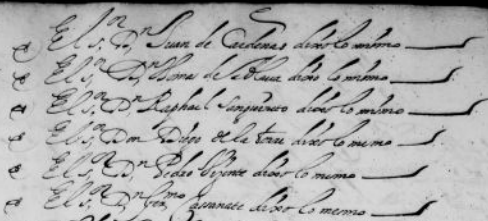 El s.r D.n Juan de Cardenas dixo lo mismo
El s.r D.n Thomas de la dixo lo mismo
El s.r D.n Raphael dixo lo mismo
El s.r Don Diego de la Torre dixo lo mismo
El s.r D.n Pedro Vizente dixo lo mismo
El s.r D.n Ger.mo Cassanate dixo lo mesmo